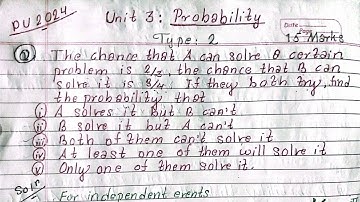 PU 2024
Unit 3: Probability
Date
Type: 2
15 Marks
Q. The chance that A can solve a certain
problem is 2/3, the chance that B can
solve it is 3/4. If they both try, find
the probability that
i A solves it but B can't
ii B solve it but A can't
iii Both of them can't solve it
iv At least one of them will solve it
v Only one of them solve it.
Soln
For independent events